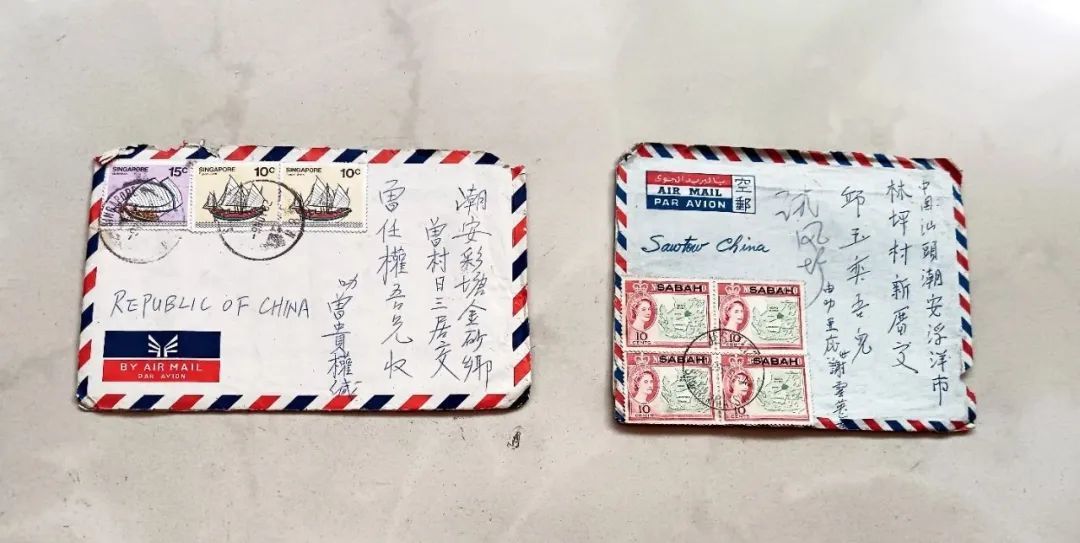 SINGAPORE 15c
SINGAPORE 10c
SINGAPORE 10c
潮安彩塘金砂鄉
曾村日三居交
曾任權吾兄收
叻曾貴權缄
REPUBLIC OF CHINA
BY AIR MAIL
PAR AVION
بالبريد الجوى
AIR MAIL
PAR AVION
空郵
Sawtow China
中國汕頭潮安浮洋市
林坪村新厝交
邱玉奕吾兒
SABAH
10
CENTS
SABAH
10
CENTS
SABAH
10
CENTS
SABAH
10
CENTS